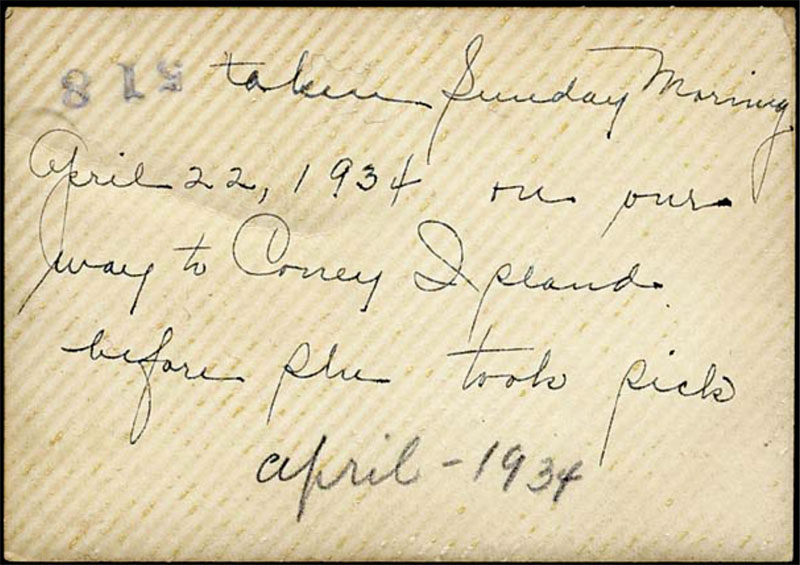 518 taken Sunday Morning
April 22, 1934 on our
way to Coney Island
before she took sick
april - 1934